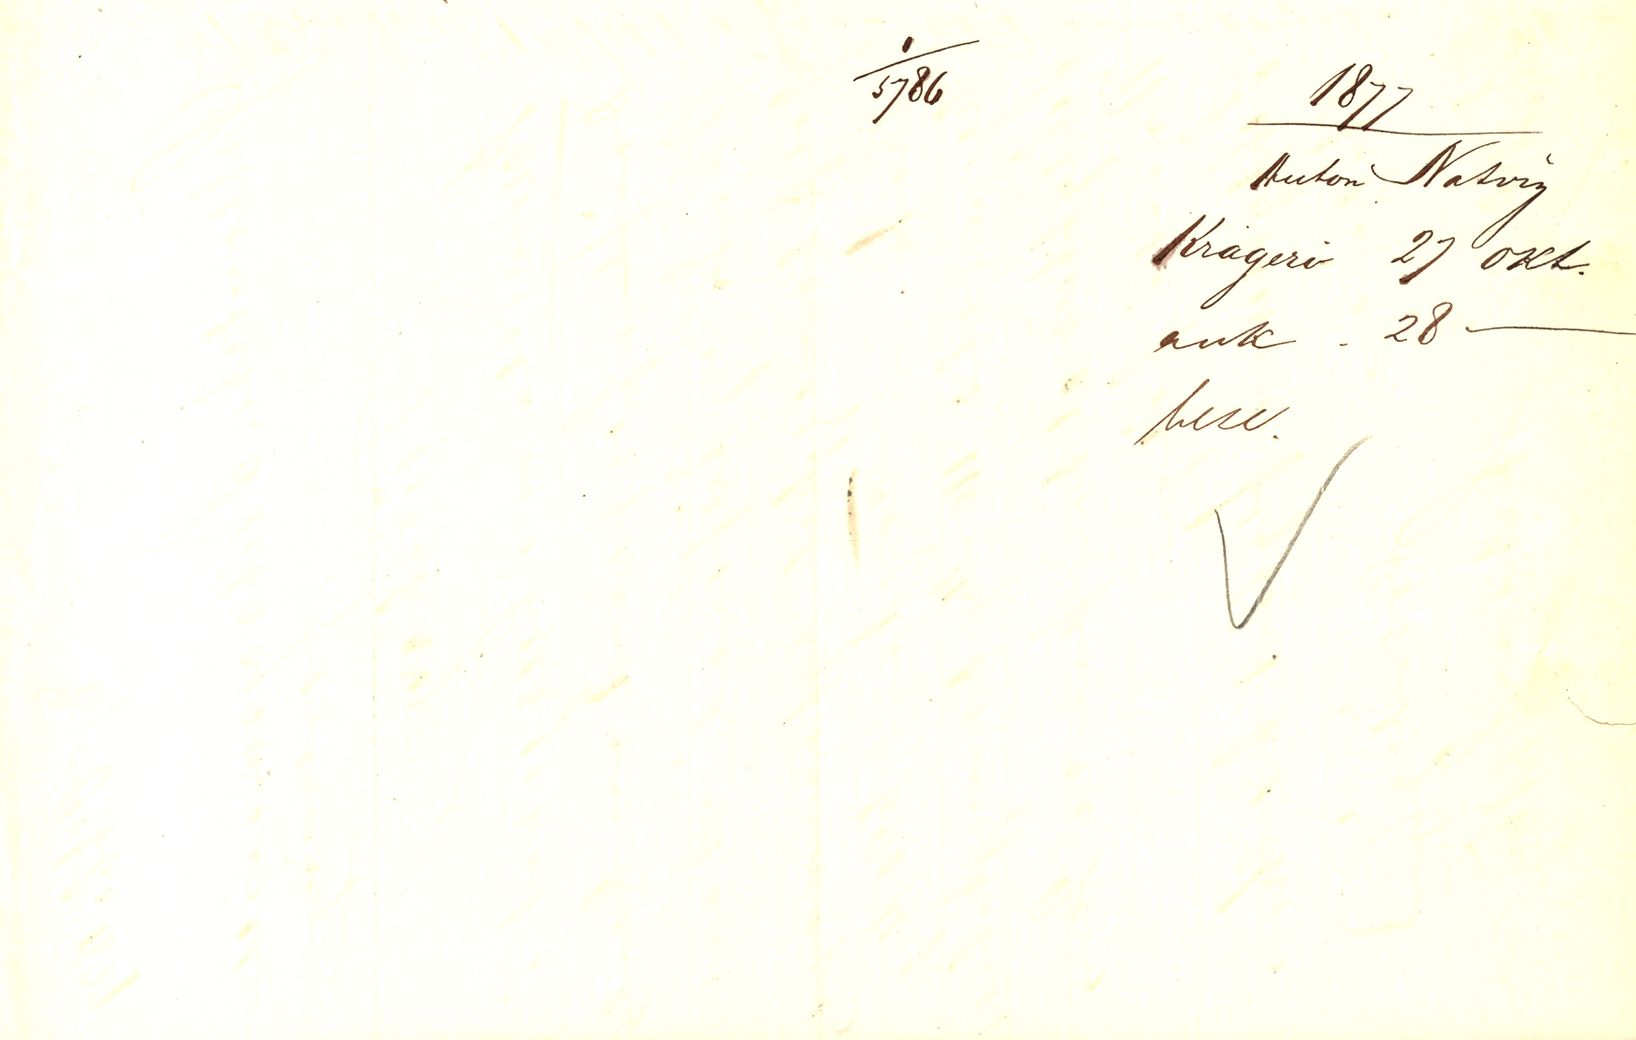 5786
1877
Anton Natvig
Kragerö 27 okt.
ank. 28 —
besv.